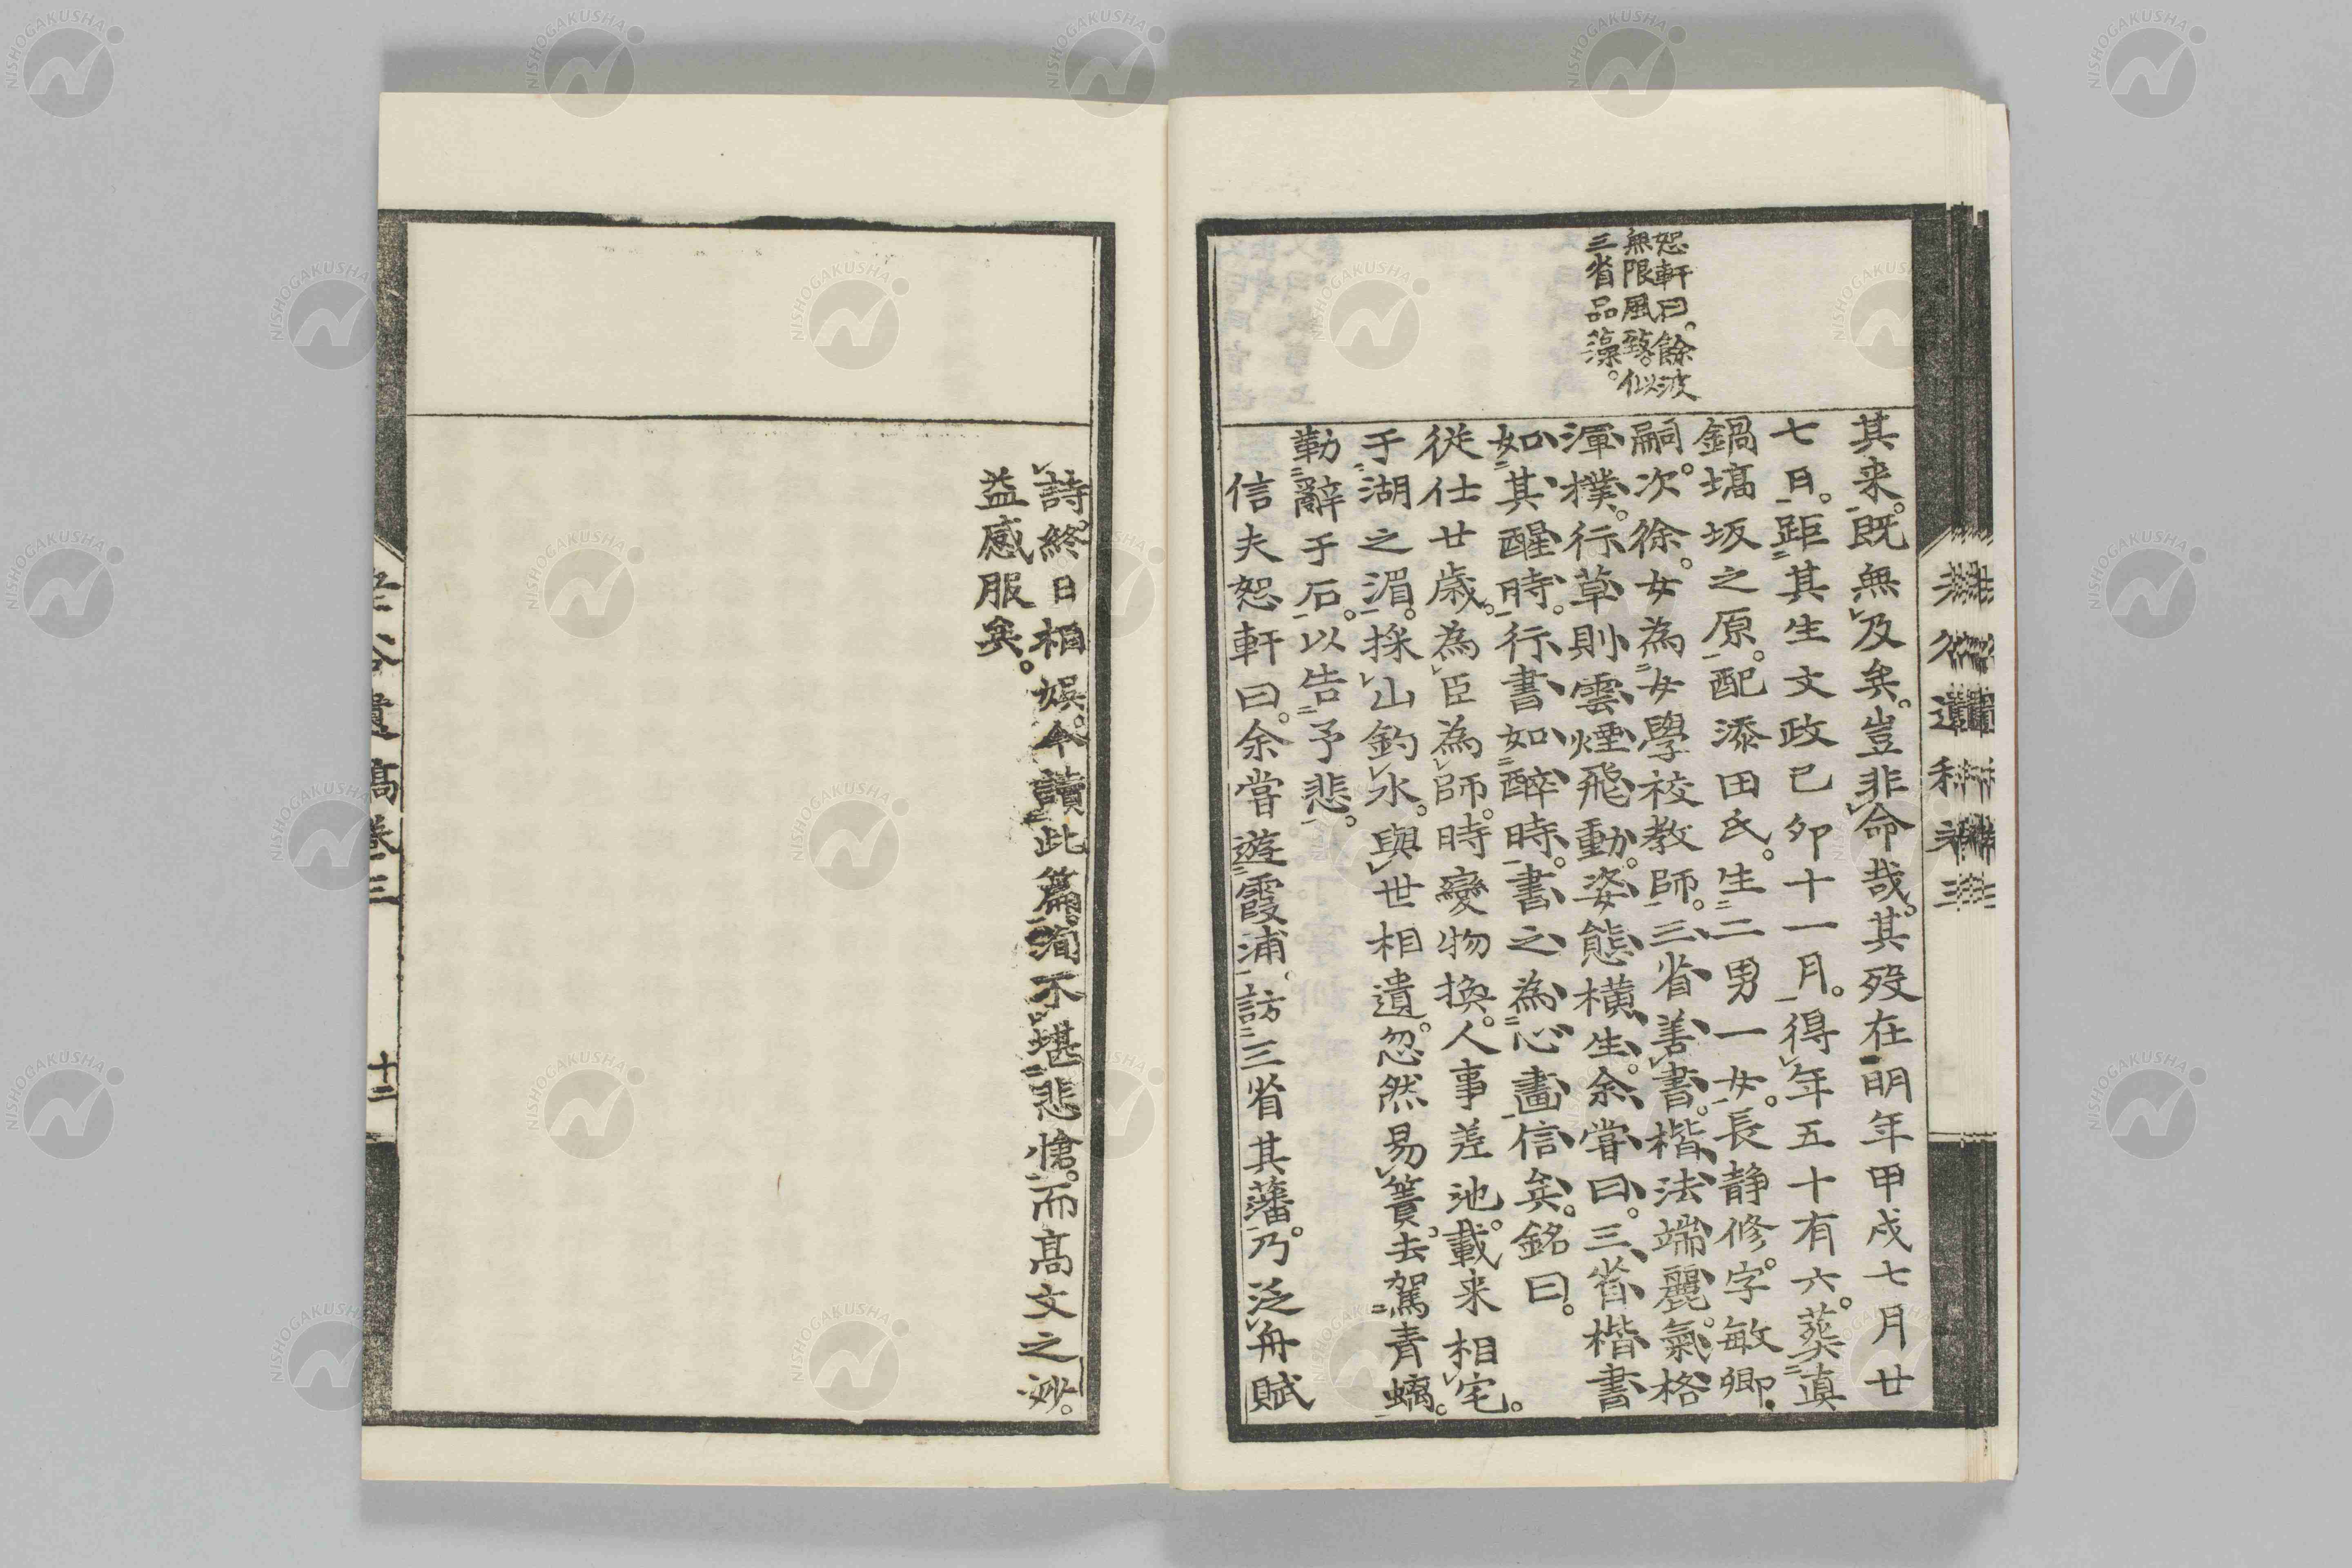 恕軒曰。餘波
無限風致。似
三省品藻。
其来。既無及矣。豈非命哉。其歿在明年甲戌七月廿
七日。距其生文政己卯十一月。得年五十有六。葬眞
鍋塙坂之原。配漆田氏。生二男一女。長静修。字敏卿。
嗣。次徐。女為女學校教師。三省善書。楷法端麗。氣格
渾樸。行草則雲煙飛動。姿態横生。余嘗曰。三省楷書
如其醒時。行書如醉時。書之為心畫信矣。銘曰。
従仕廿歳。為臣為師。時變物換。人事差池。載来相宅。
于湖之湄。採山釣水。與世相遺。忽然易簀。去駕青螭。
勒辭于石。以告予悲。
信夫恕軒曰。余嘗遊霞浦。訪三省其藩。乃泛舟賦
詩。終日相娯。今讀此篇。洵不堪悲愴。而高文之妙。
益感服矣。
遺稿卷三
十二
NISHOGAKUSHA